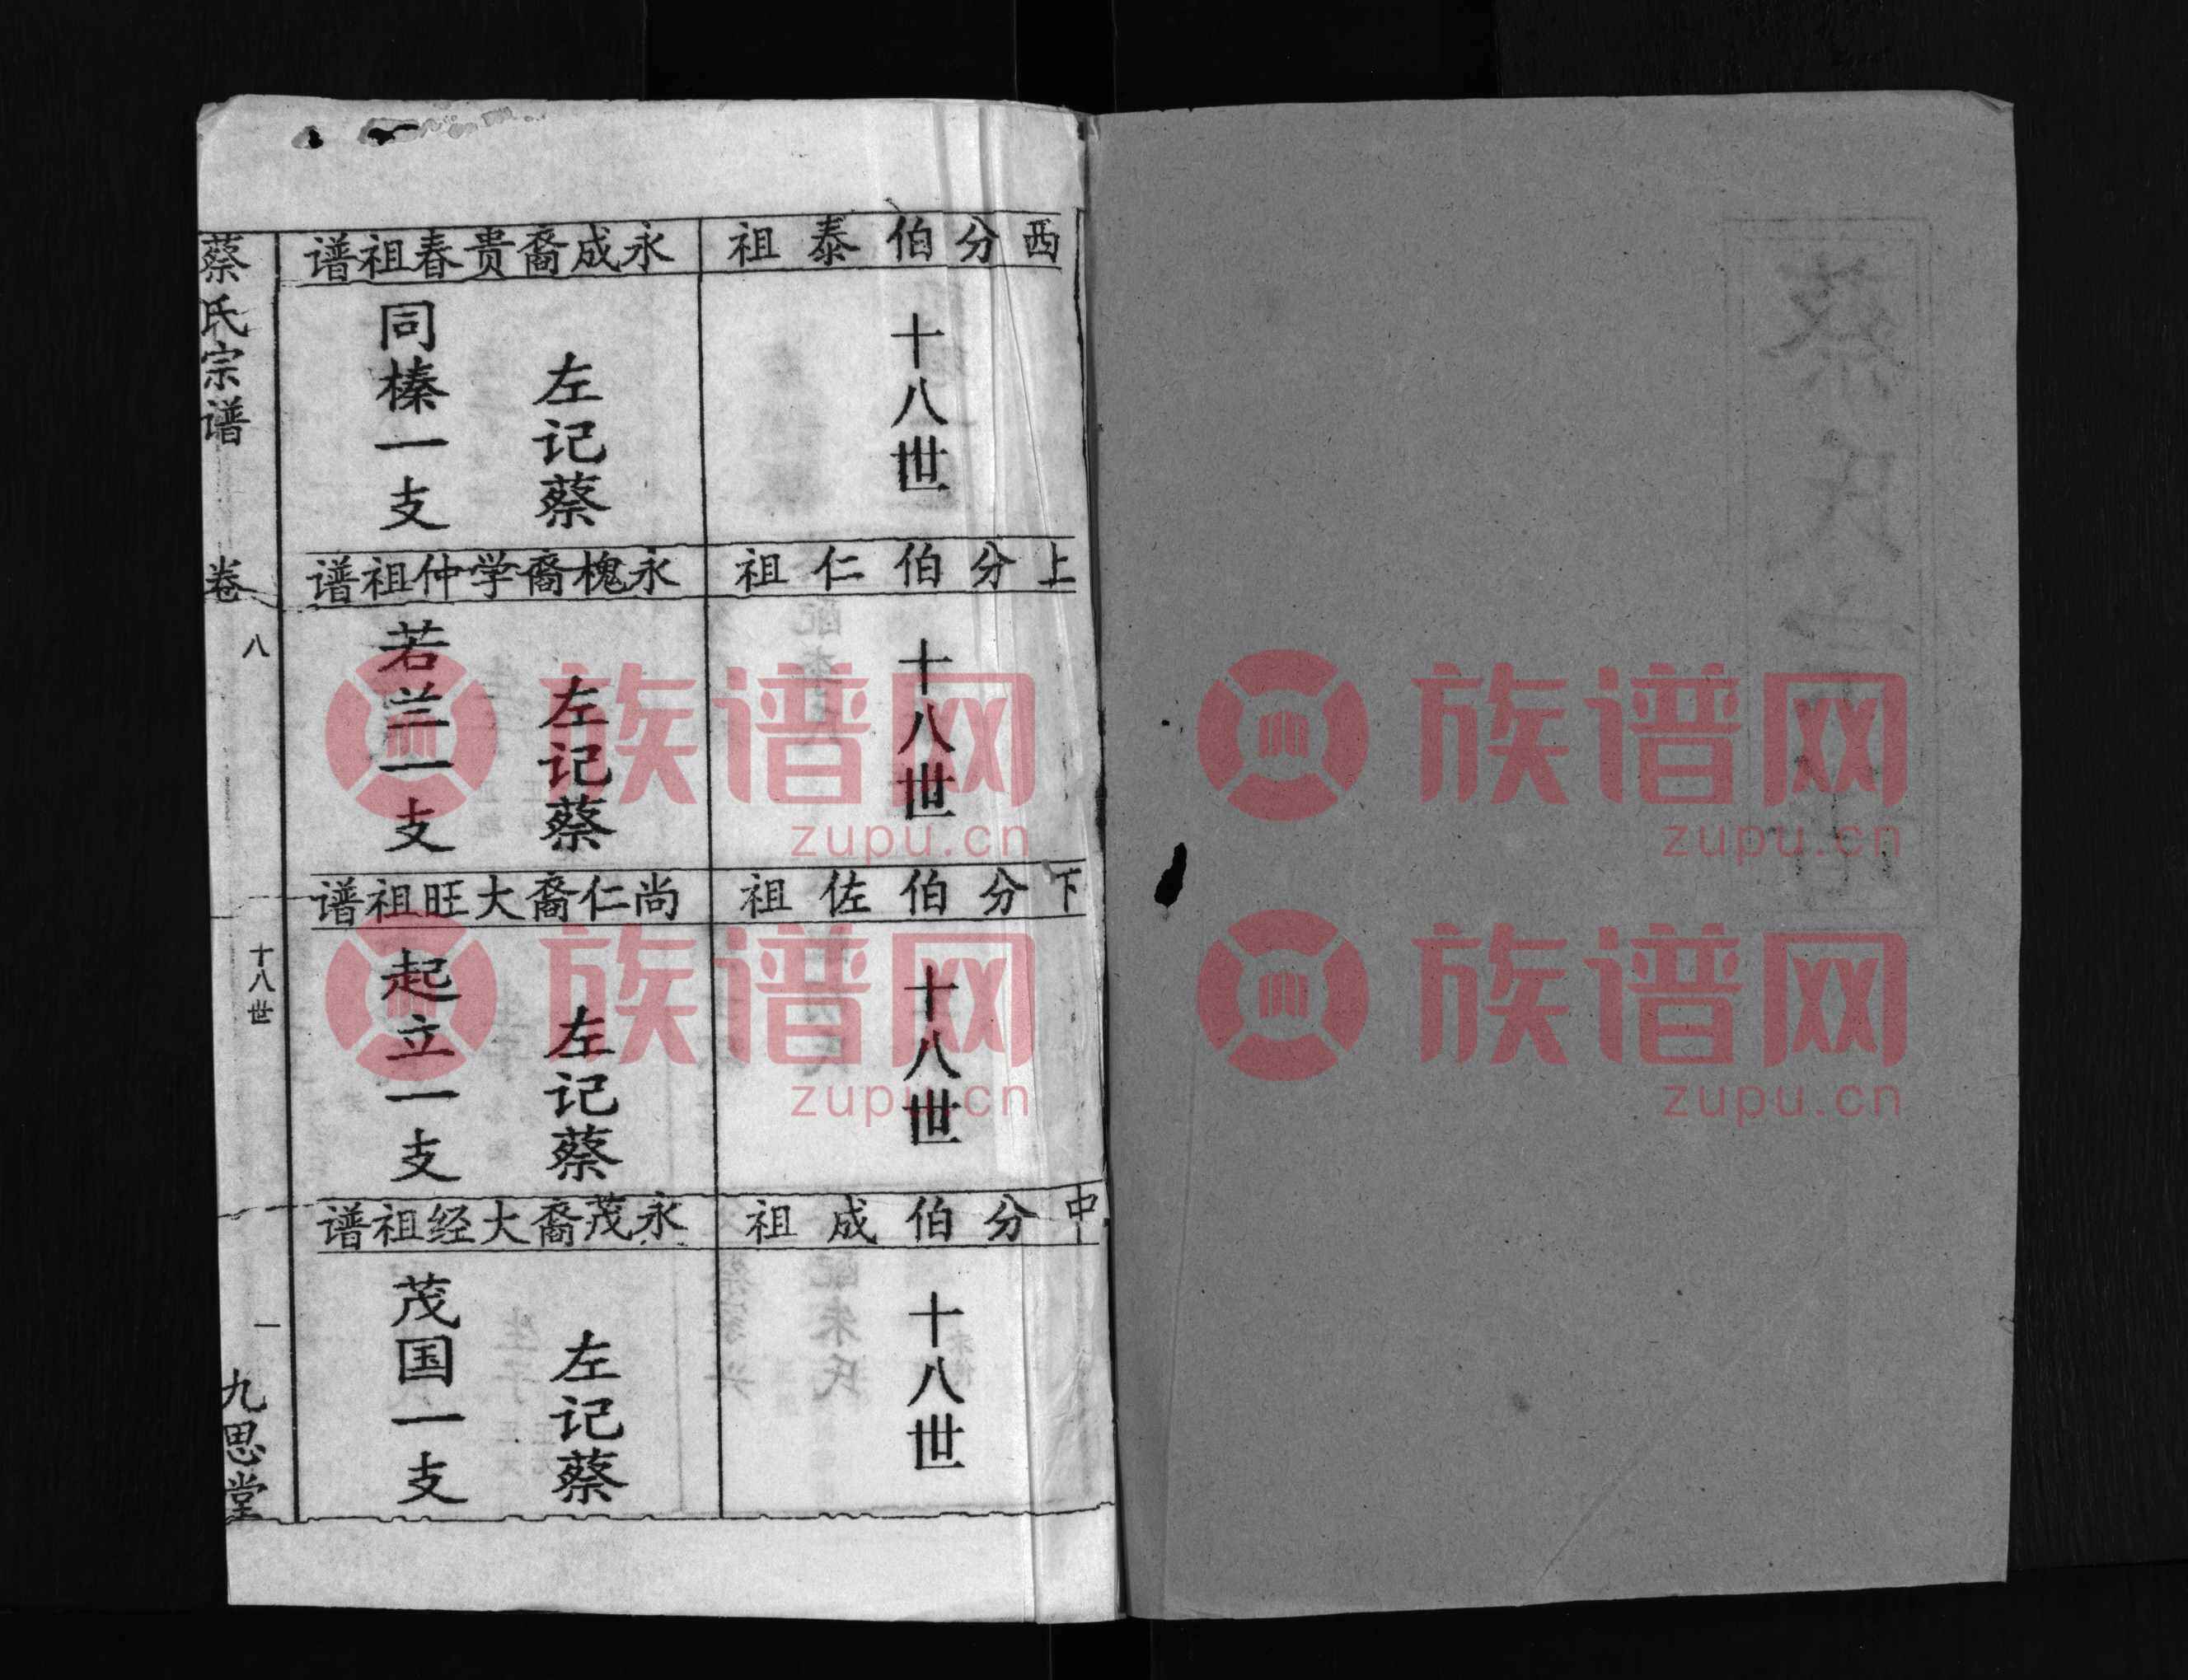 西分伯泰祖
十八世
永成裔贵春祖谱
左记蔡
同榛一支
上分伯仁祖
十八世
永槐裔学仲祖谱
左记蔡
若兰一支
下分伯佐祖
十八世
尚仁裔大旺祖谱
左记蔡
起立一支
中分伯成祖
十八世
永茂裔大经祖谱
左记蔡
茂国一支
蔡氏宗谱
卷八
十八世
一
九思堂
族谱网
zupu.cn
族谱网
zupu.cn
族谱网
zupu.cn
族谱网
zupu.cn